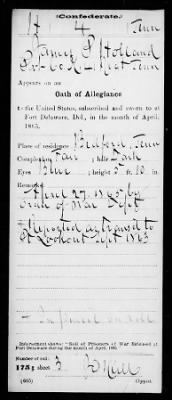 (Confederate.)
H 4 Tenn
James P Holland
Pvt Co K 4 Regt Tenn
Appears on an
Oath of Allegiance
to the United States, subscribed and sworn to at
Fort Delaware, Del., in the month of April,
1865.
Place of residence Bedford, Tenn
Complexion Fair; hair Dark
Eyes Blue; height 5 ft. 10 in.
Remarks:
April 27 1865 by
order of War Dept
Reported
Pt Lookout Sept 1863
Indorsement shows: "Roll of Prisoners of War Released at
Fort Delaware during the month of April, 1865.
Number of roll:
175; sheet 3
(665) Copyist.